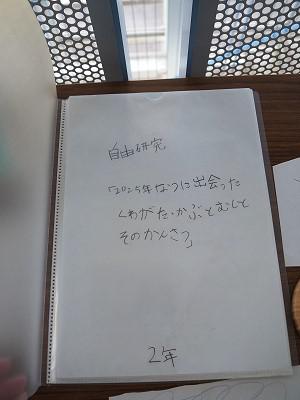 自由研究
「2025年なつに出会った
くわがた・かぶとむしと
そのかんさつ」
2年